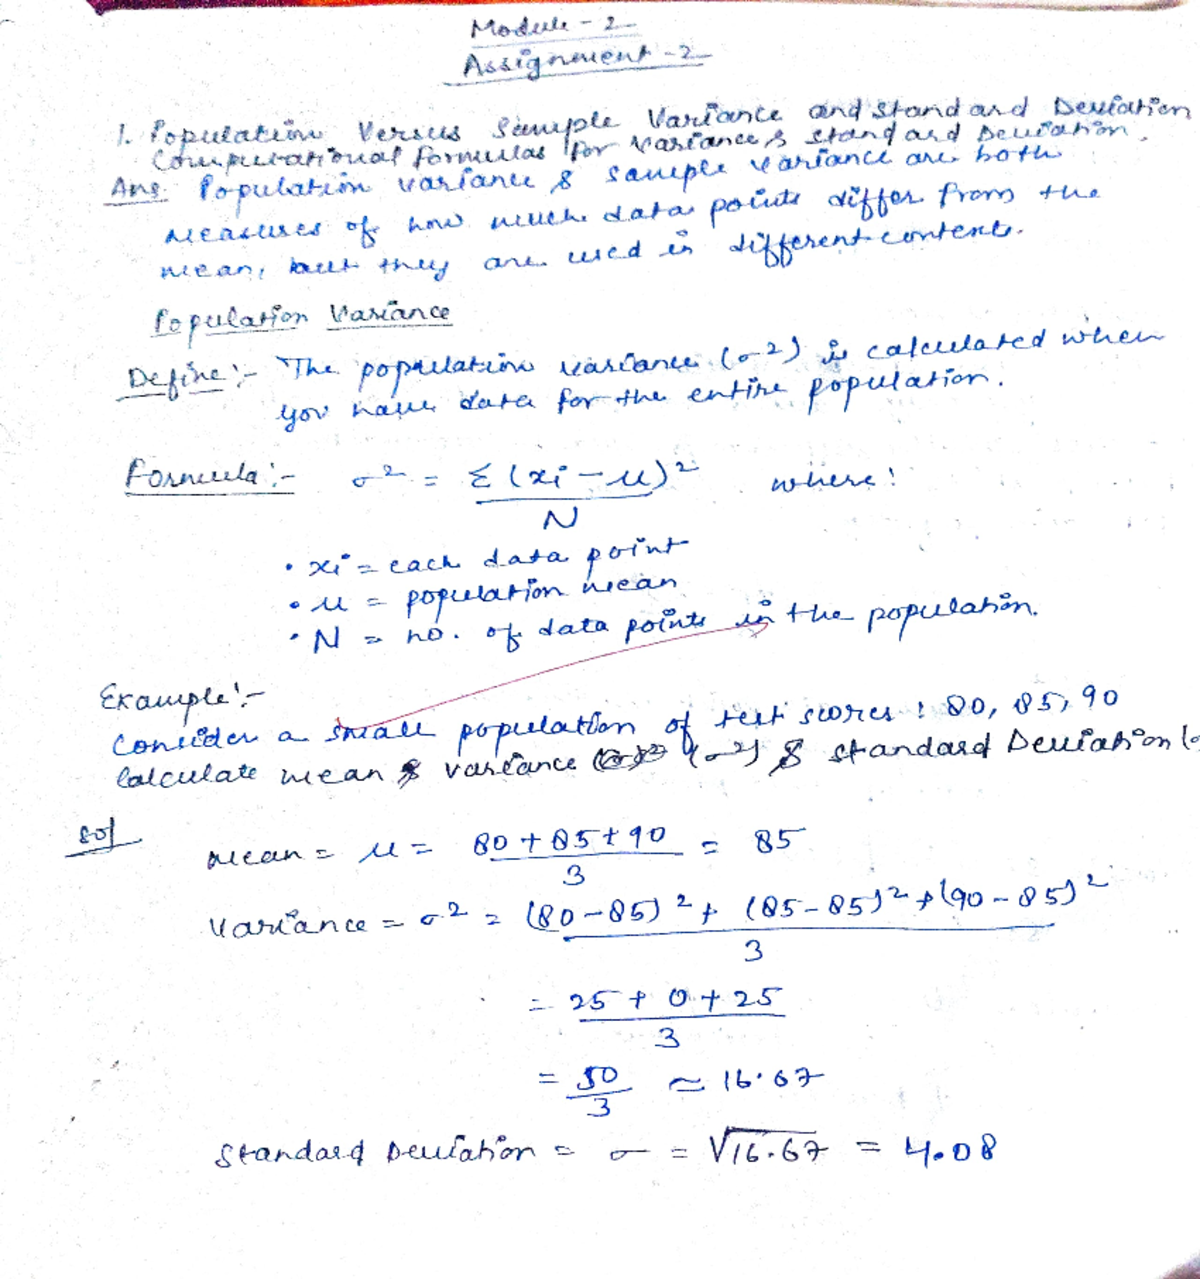 Module - 2
Assignment - 2
1. Population Versus Sample Variance and Standard Deviation
Computational formulas for variance & standard Deviation.
Ans. Population variance & sample variance are both
measures of how much data points differ from the
mean, but they are used in different contexts.
Population Variance
Define :- The population variance (σ²) is calculated when
you have data for the entire population.
Formula :- σ² = Σ(xi - μ)² / N where :
• xi = each data point
• μ = population mean
• N = no. of data points in the population.
Example :-
Consider a small population of test scores : 80, 85, 90
Calculate mean & variance (σ²) & standard Deviation (σ
Sol
Mean = μ = 80 + 85 + 90 / 3 = 85
Variance = σ² = (80 - 85)² + (85 - 85)² + (90 - 85)² / 3
= 25 + 0 + 25 / 3
= 50 / 3 ≈ 16.67
Standard Deviation = σ = √16.67 = 4.08